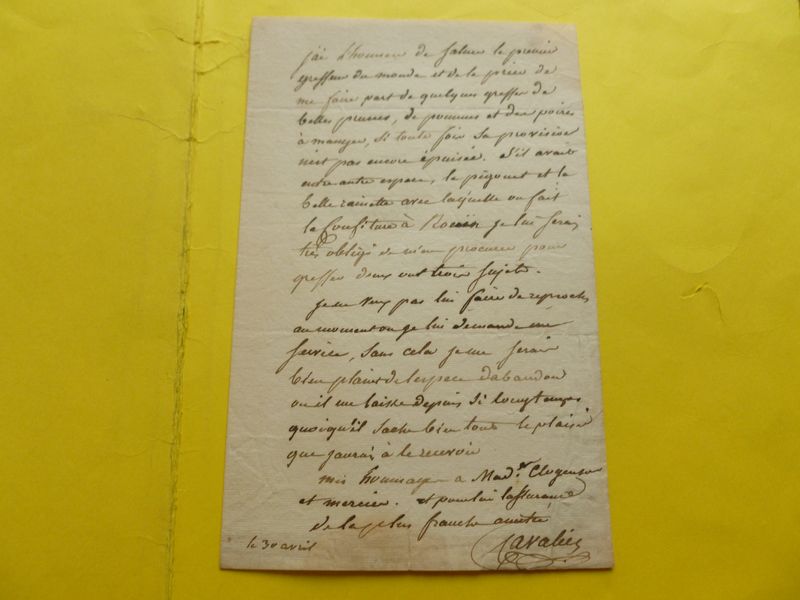 j'ai l'honneur de saluer le premier
greffeur du monde et de le prier de
me faire part de quelques greffes de
belles prunes, de pommes et des poires
à manger, si toute fois sa provision
n'est pas encore épuisée. s'il avait
entre autre espece, le pigonet et la
belle rainette avec laquelle on fait
la confiture à Rouën je lui serai
très obligé de m'en procurer pour
greffer deux out trois sujets.
je ne veux pas lui faire de reproches
au moment ou je lui demande un
service, sans cela je me serais
bien plaint de l'espece d'abandon
ou il me laisse depuis si longtemps
quoiqu'il sache bien tout le plaisir
que j'aurai à le recevoir
mes hommages a Mad.e Clogenson
et mercier. et pour lui l'assurance
de la plus franche amitié
le 30 avril
Cavalier